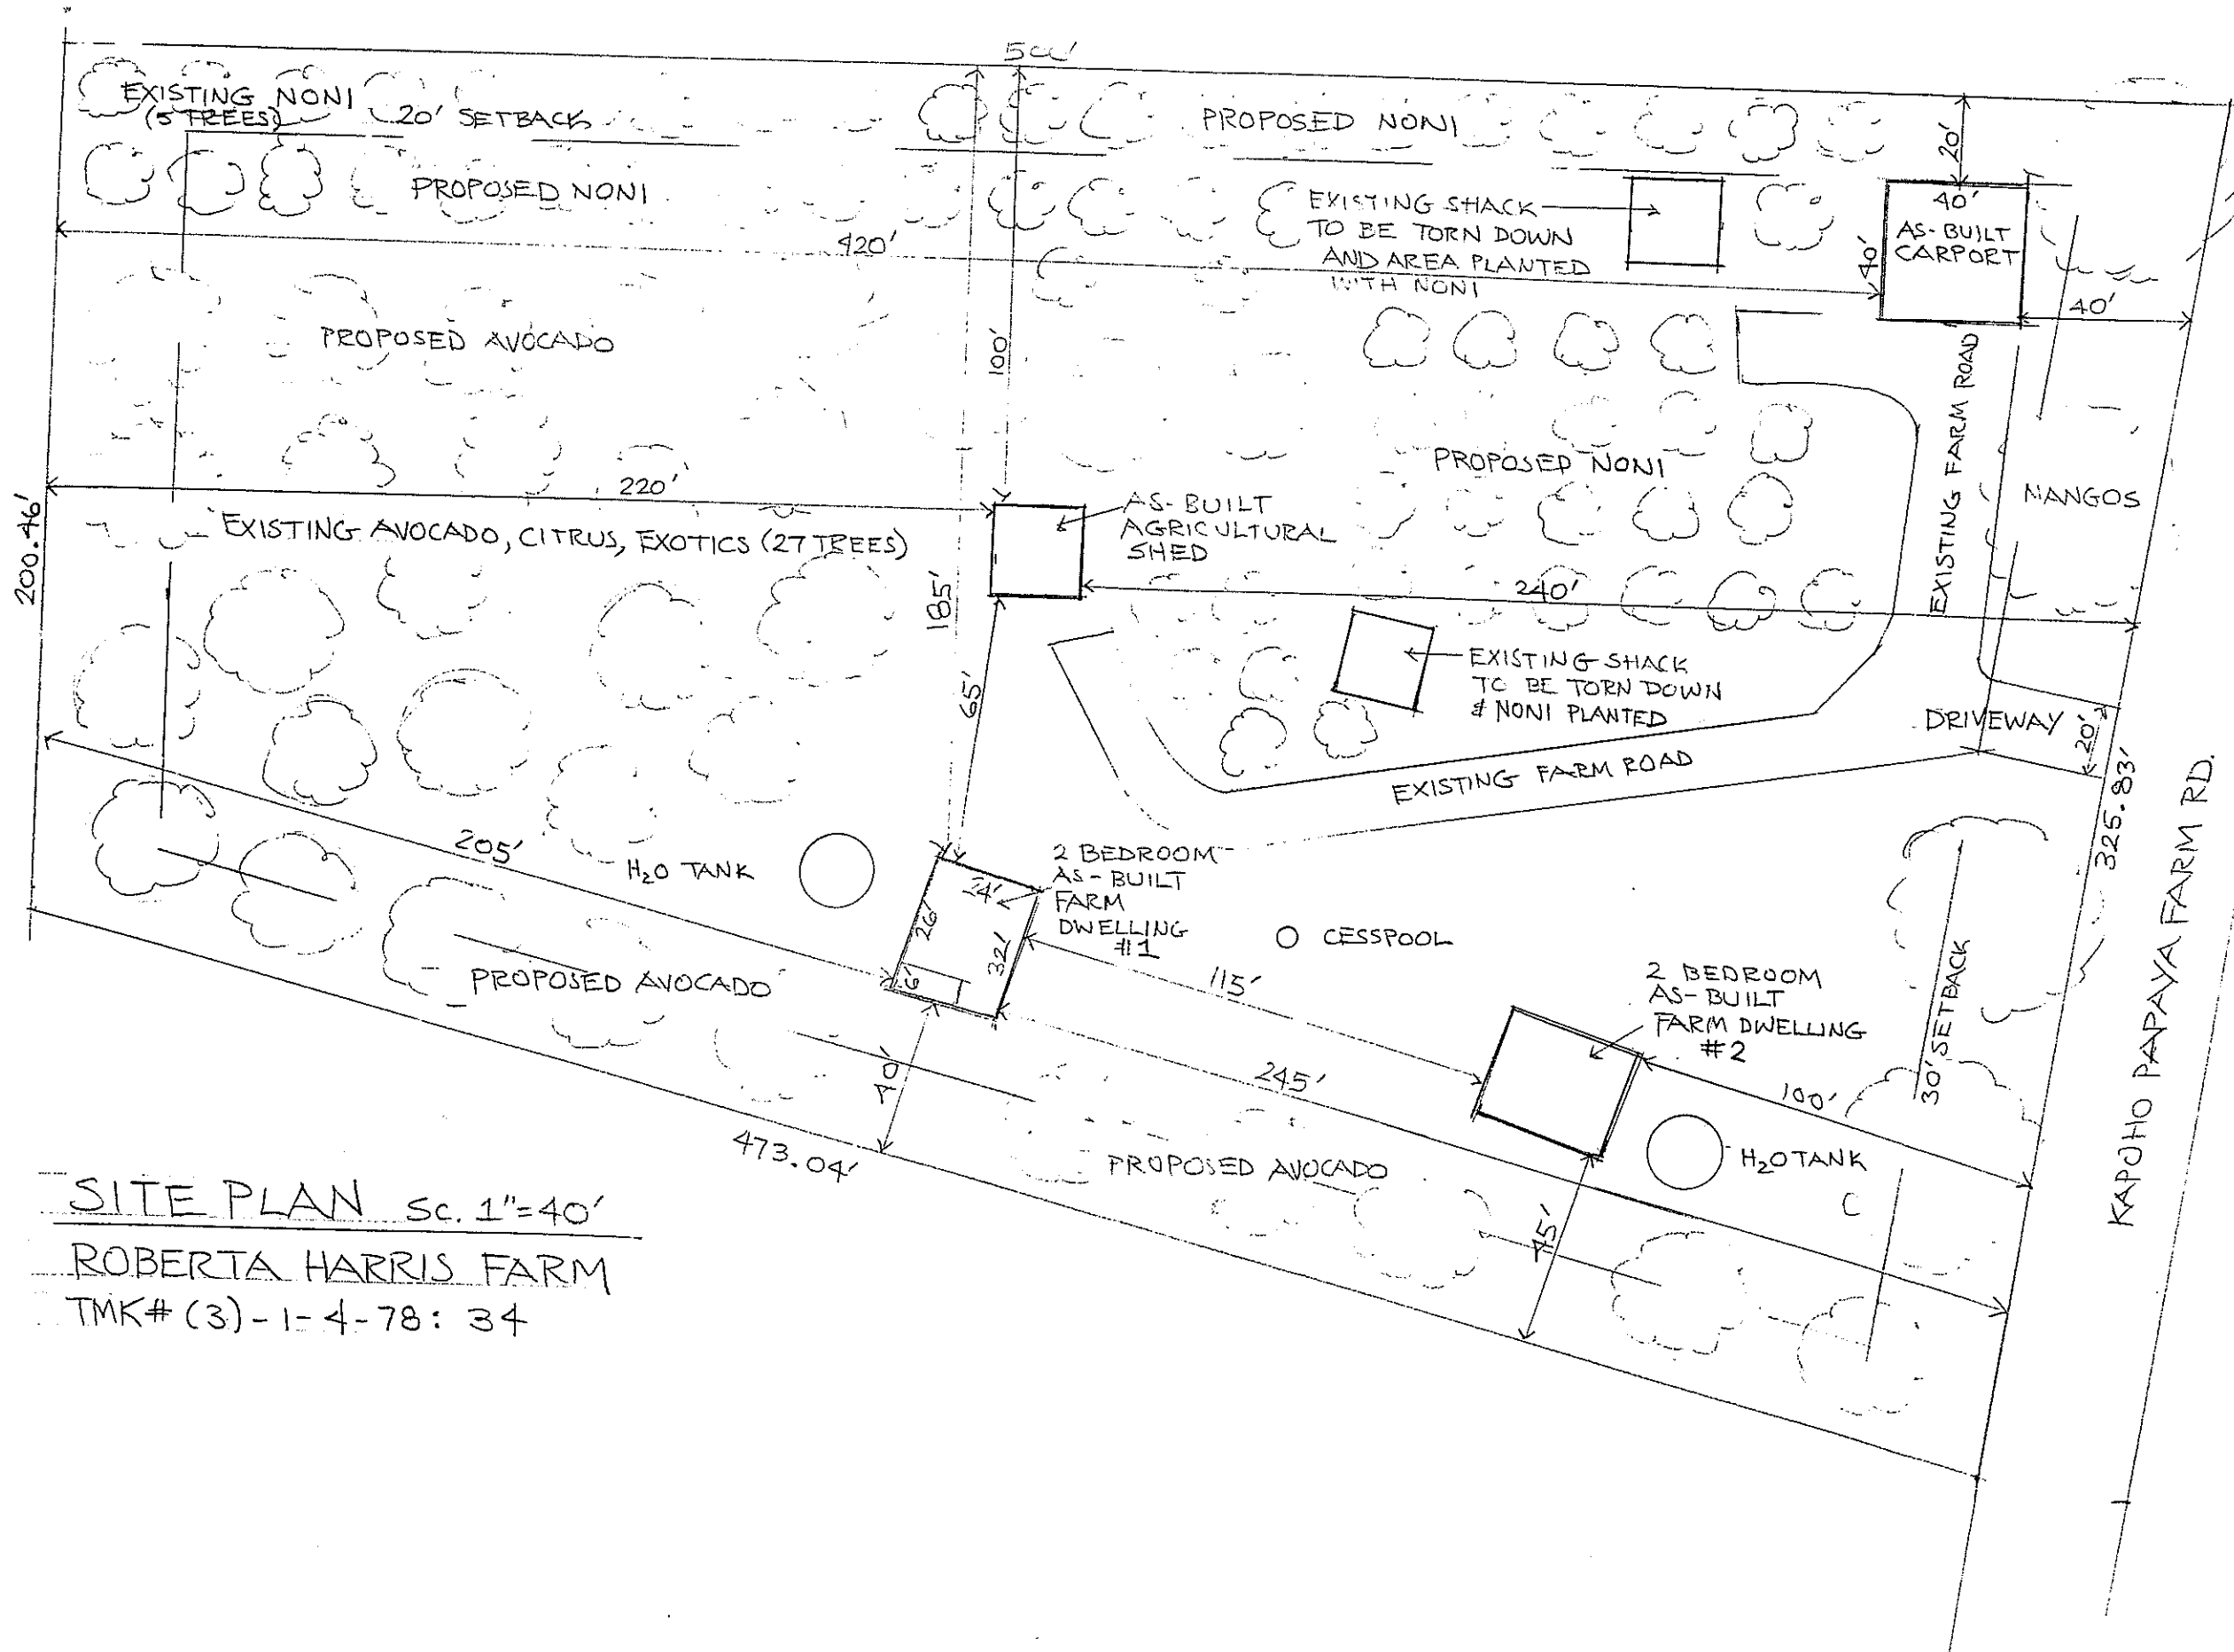 500'
EXISTING NONI
(5 TREES)
20' SETBACK
PROPOSED NONI
20'
PROPOSED NONI
EXISTING SHACK
TO BE TORN DOWN
AND AREA PLANTED
WITH NONI
40'
AS-BUILT
CARPORT
40'
420'
40'
PROPOSED AVOCADO
100'
EXISTING FARM ROAD
PROPOSED NONI
MANGOS
220'
200.46'
EXISTING AVOCADO, CITRUS, EXOTICS (27 TREES)
AS-BUILT
AGRICULTURAL
SHED
185'
240'
65'
EXISTING SHACK
TO BE TORN DOWN
& NONI PLANTED
DRIVEWAY
20'
EXISTING FARM ROAD
325.83'
KAPOHO PAPAYA FARM RD.
205'
H2O TANK
2 BEDROOM
AS-BUILT
FARM
DWELLING
#1
24'
26'
32'
6'
CESSPOOL
PROPOSED AVOCADO
115'
2 BEDROOM
AS-BUILT
FARM DWELLING
#2
30' SETBACK
40'
245'
100'
473.04'
PROPOSED AVOCADO
H2O TANK
45'
SITE PLAN SC. 1"=40'
ROBERTA HARRIS FARM
TMK# (3)-1-4-78: 34